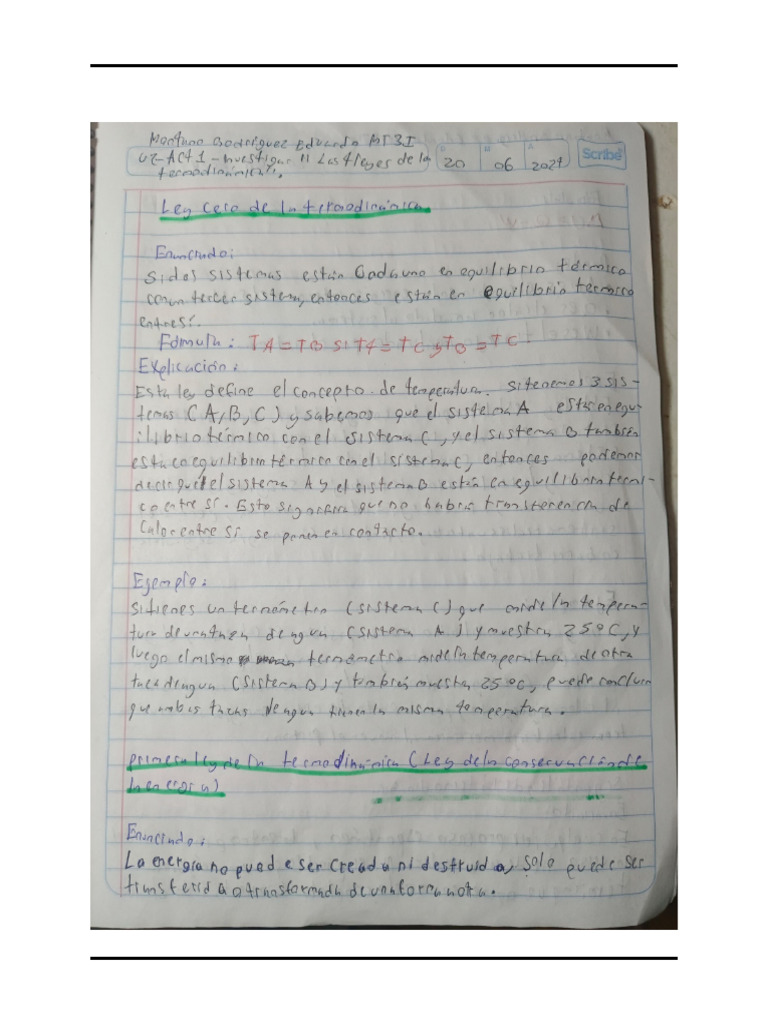 Rodriguez Eduardo MT3I
U2-ACT1-Investigar 11 Las leyes de la
termodinámica.
D M A
20 06 2024
Scribe
Ley cero de la termodinámica.
Enunciado:
Si dos sistemas están Cada uno en equilibrio térmico
con un tercer sistema, entonces están en equilibrio térmico
entre sí.
Fórmula: TA = TB si TA = TC y TB = TC
Explicación:
Esta ley define el concepto de temperatura. Si tenemos 3 sis-
temas (A, B, C) y sabemos que el sistema A esta en equ-
ilibrio térmico con el sistema C, y el sistema B tambien
esta en equilibrio térmico con el sistema C, entonces podemos
decir que el sistema A y el sistema B están en equilibrio termi-
co entre sí. Esto significa que no habra transferencia de
Calor entre si se ponen en contacto.
Ejemplo:
Si tienes un termómetro (sistema C) que mide la tempera-
tura de una taza de agua (sistema A) y muestra 25°C, y
luego el mismo termómetro mide la temperatura de otra
taza de agua (Sistema B) y tambien muestra 25°C, puede concluir
que ambas tazas de agua tienen la misma temperatura.
primera ley de la termodinámica (Ley de la conservación de
la energía)
Enunciado:
La energía no puede ser creada ni destruida, Solo puede ser
transferida o transformada de una forma a otra.